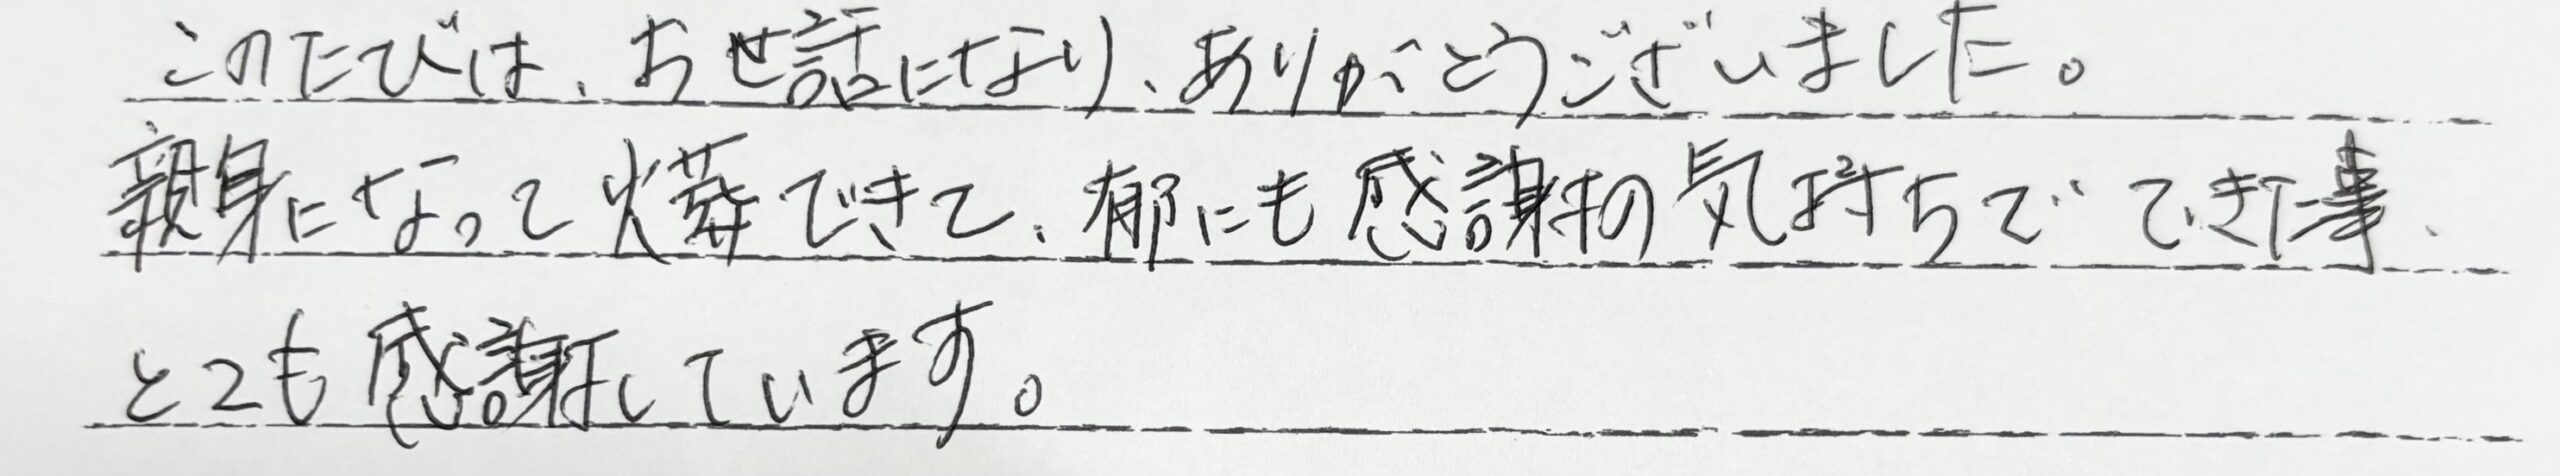 このたびは、お世話になり、ありがとうございました。
親身になって火葬できて、郁にも感謝の気持ちでできた事、
とても感謝しています。